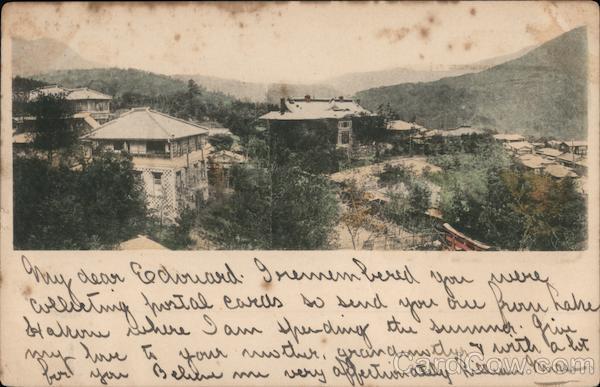 My dear Edouard. I remembered you were
collecting postal cards so send you one from Lake
Hakone where I am spending the summer. Give
my love to your mother, grandmother & with a lot
for you Believe me very affectionately
CardCow.com